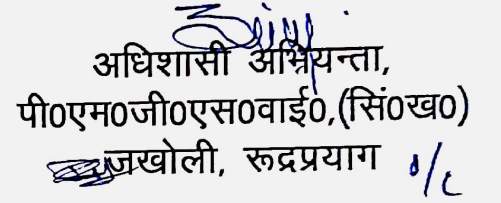 अधिशासी अभियन्ता,
पी0एम0जी0एस0वाई0,(सिं0ख0)
जखोली, रूद्रप्रयाग